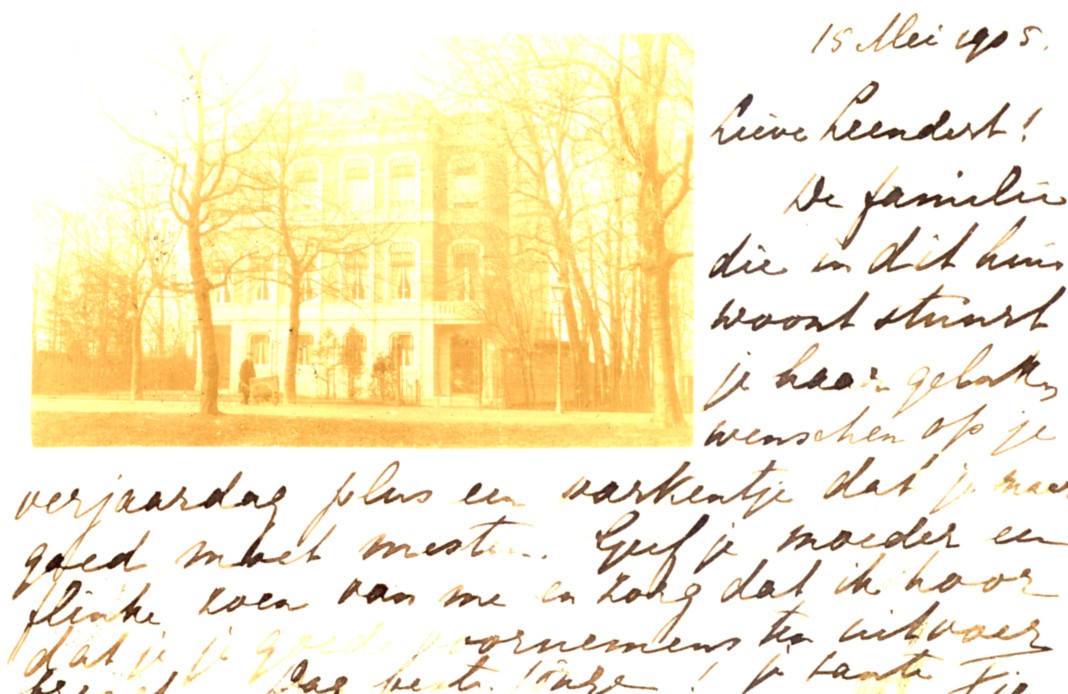 15 Mei 1905.
Lieve Leendert!
De familie
die in dit huis
woont stuurt
je haar geluk
wenschen op je
verjaardag plus een varkentje dat je maar
goed moet mesten. Geef je moeder een
flinke zoen van me en zorg dat ik hoor
dat je je goede voornemens ten uitvoer
Dag beste jongen! je tante